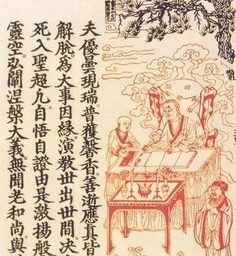 夫優曇現瑞普獲馨香善逝應真皆
解脫為大事因緣演教世出世間決
死入聖超凡自悟自證由是激揚般
靈空弘闡涅槃大義無聞老和尚與